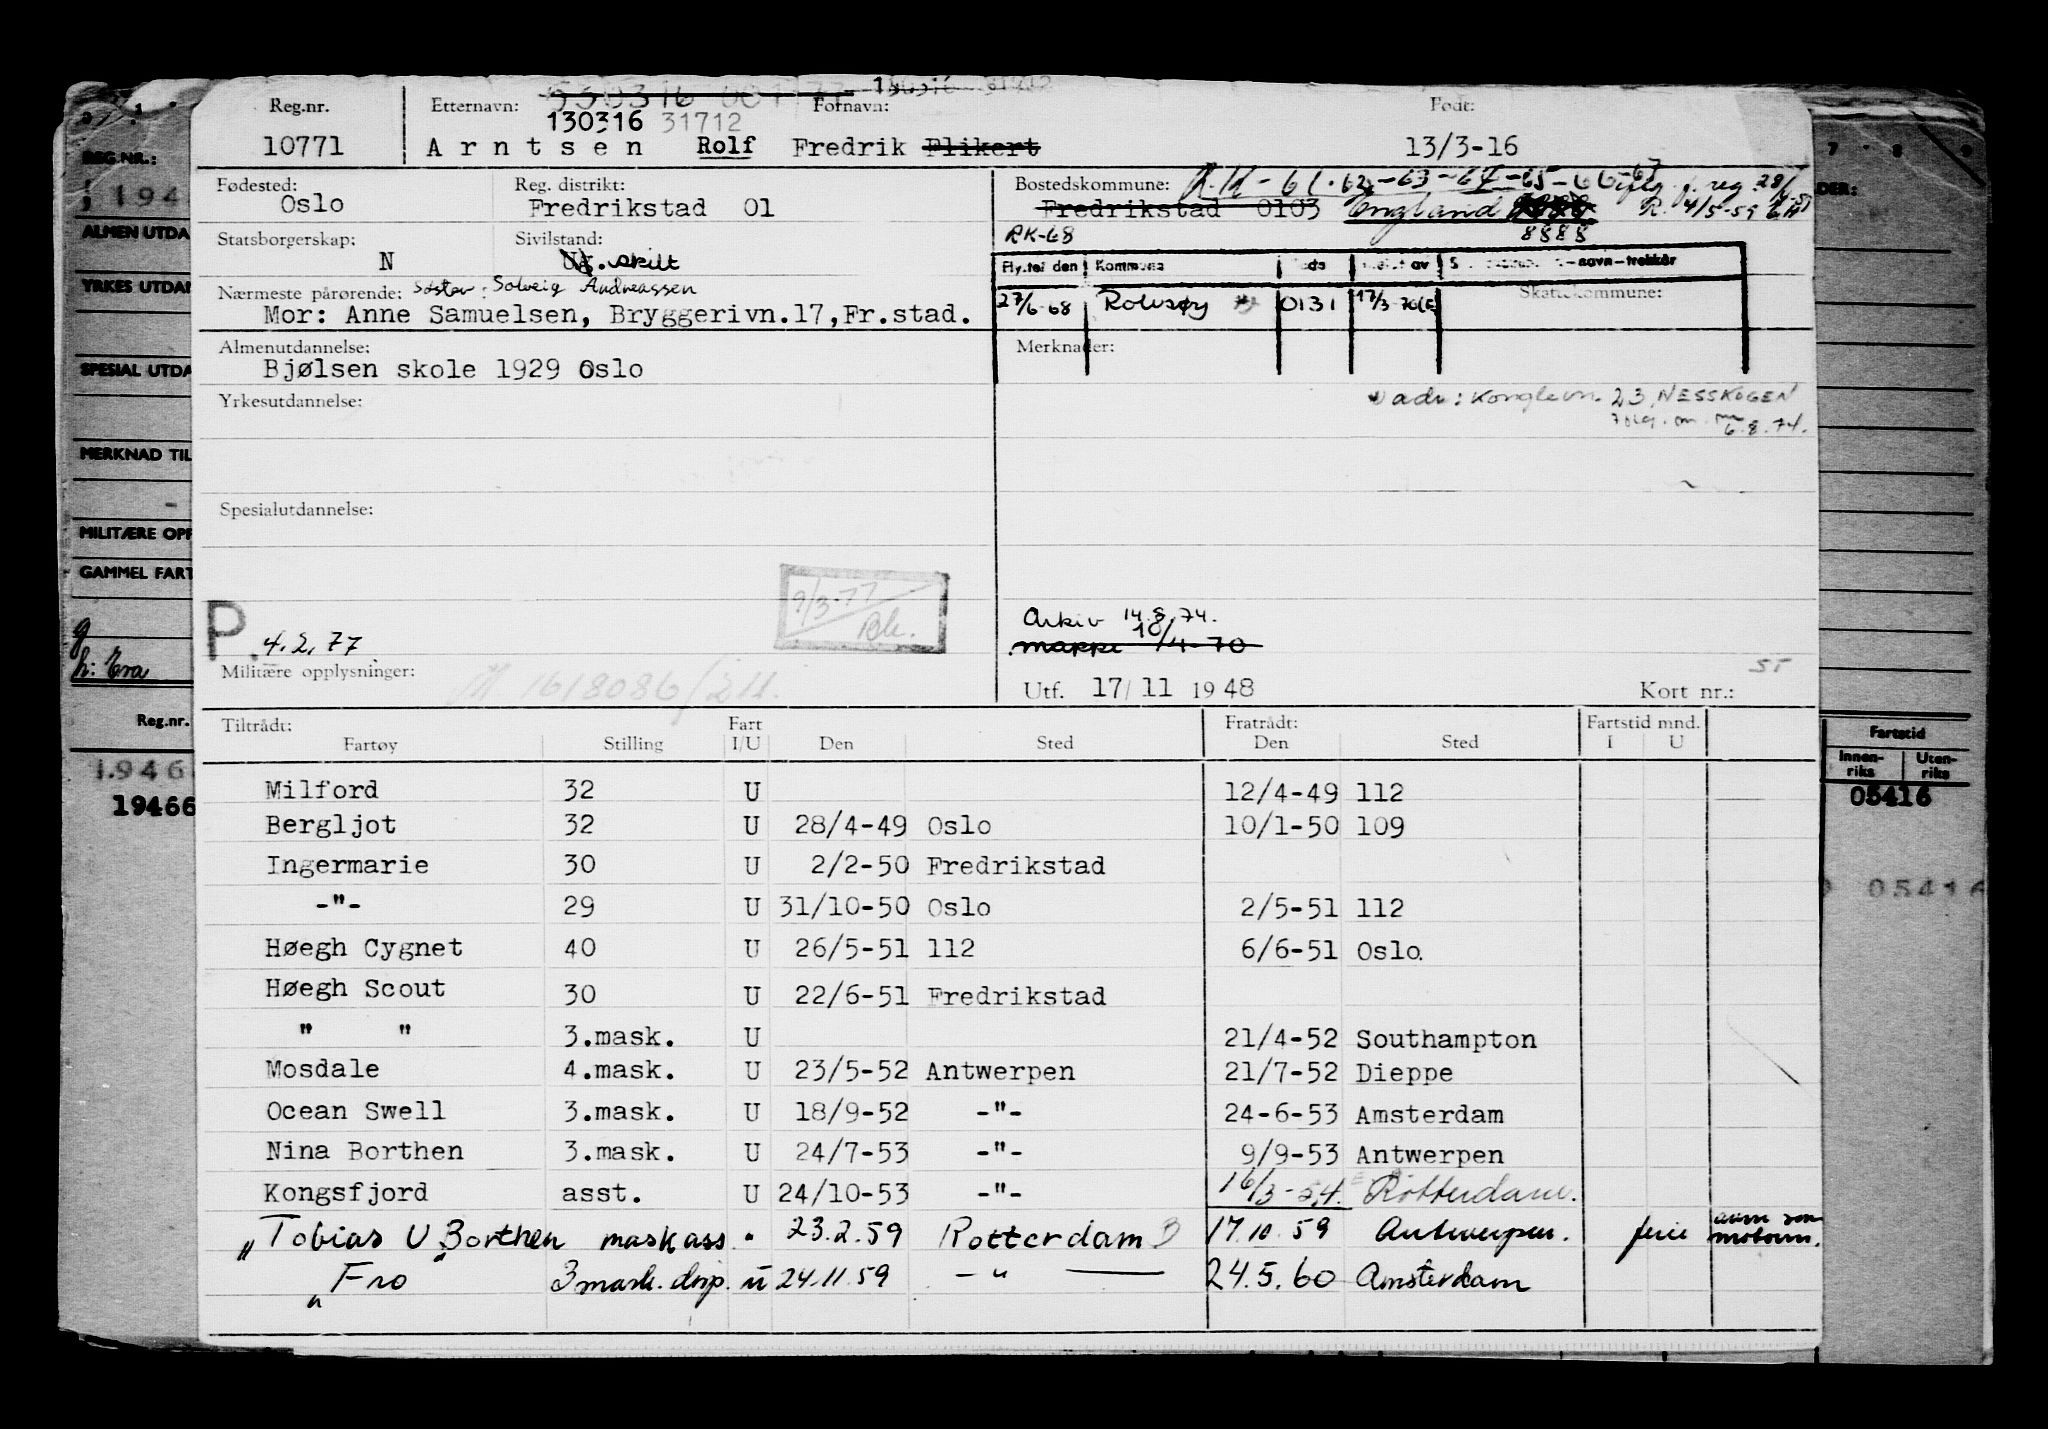 Reg.nr. Etternavn: Fornavn: Født:
130316 31712
10771 Arntsen Rolf Fredrik Flikert 13/3-16
Fødested: Reg. distrikt: Bostedskommune: R.K-61-62-63-64-65-66-67
Oslo Fredrikstad 01 Fredrikstad 0103 England R. 4/5-59
Statsborgerskap: Sivilstand: RK-68 8888
N Ug. skilt
Fly.tei den Kommune
Nærmeste pårørende: Søster: Solveig Andreassen 27/6-68 Rolvsøy 0131 17/3-70 Skattekommune:
Mor: Anne Samuelsen, Bryggerivn.17, Fr.stad.
Almenutdannelse: Merknader:
Bjølsen skole 1929 Oslo
Yrkesutdannelse: adr: Konglevn. 23, NESSKOGEN
6.8.74.
Spesialutdannelse:
9/3-77
Bk.
P. 4.2.77
Arkiv 14.8.74.
mappe 10/4-70
Militære opplysninger: Utf. 17/11 1948 Kort nr.:
ST
Tiltrådt: Fart Fratrådt: Fartstid mnd.
Fartøy Stilling I/U Den Sted Den Sted I U
Milford 32 U 12/4-49 112
Bergljot 32 U 28/4-49 Oslo 10/1-50 109
Ingermarie 30 U 2/2-50 Fredrikstad
-"- 29 U 31/10-50 Oslo 2/5-51 112
Høegh Cygnet 40 U 26/5-51 112 6/6-51 Oslo.
Høegh Scout 30 U 22/6-51 Fredrikstad
" " 3.mask. U 21/4-52 Southampton
Mosdale 4.mask. U 23/5-52 Antwerpen 21/7-52 Dieppe
Ocean Swell 3.mask. U 18/9-52 -"- 24-6-53 Amsterdam
Nina Borthen 3.mask. U 24/7-53 -"- 9/9-53 Antwerpen
Kongsfjord asst. U 24/10-53 -"- 16/3-54 Rotterdam.
" Tobias U. Borthen maskass. " 23.2.59 Rotterdam 17.10.59 Antwerpen. ferie
" Fro 3 mask. disp. U 24.11.59 -"- 24.5.60 Amsterdam
REG.NR.:
194
ALMEN UTDA
YRKES UTDA
SPESIAL UTDA
MERKNAD TIL
MILITÆRE OPP
GAMMEL FART
Reg.nr.
1946
19466
Fartstid
Innen-riks Uten-riks
05416
05416